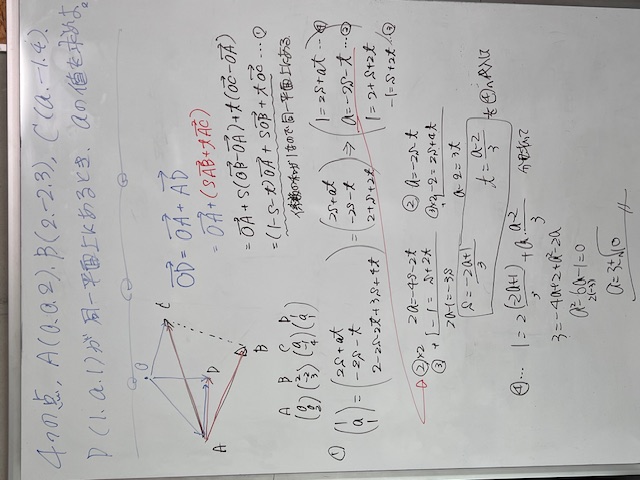 4つの点, A(0.0.2), B(2.-2.3), C(a.-1.4).
D(1.a.1)が同一平面上にあるとき, aの値を求めよ。
O
C
D
A
B
OD = OA + AD
= OA + (sAB + tAC)
= OA + s(OB - OA) + t(OC - OA)
= (1-s-t)OA + sOB + tOC … ①
係数の和が1なので同一平面上にある
A B C D
(0 0 2) (2 -2 3) (a -1 4) (1 a 1)
① (1 a 1) = (2s+at -2s-t 2-2s-2t+3s+4t) = (2s+at -2s-t 2+s+2t) ⇒
1=2s+at … ④
a=-2s-t … ②
1=2+s+2t
-1=s+2t … ③
②×2 2a=-4s-2t
③ + -1 = s+2t
2a-1=-3s
s = -2a+1/3
② a=-2s-t
③×2 + -2=2s+4t
a-2=3t
t = a-2/3
を④に代入
④… 1=2(-2a+1)/3 + a・a-2/3
3=-4a+2+a²-2a
a²-6a-1=0
2(-3)
a=3±√10